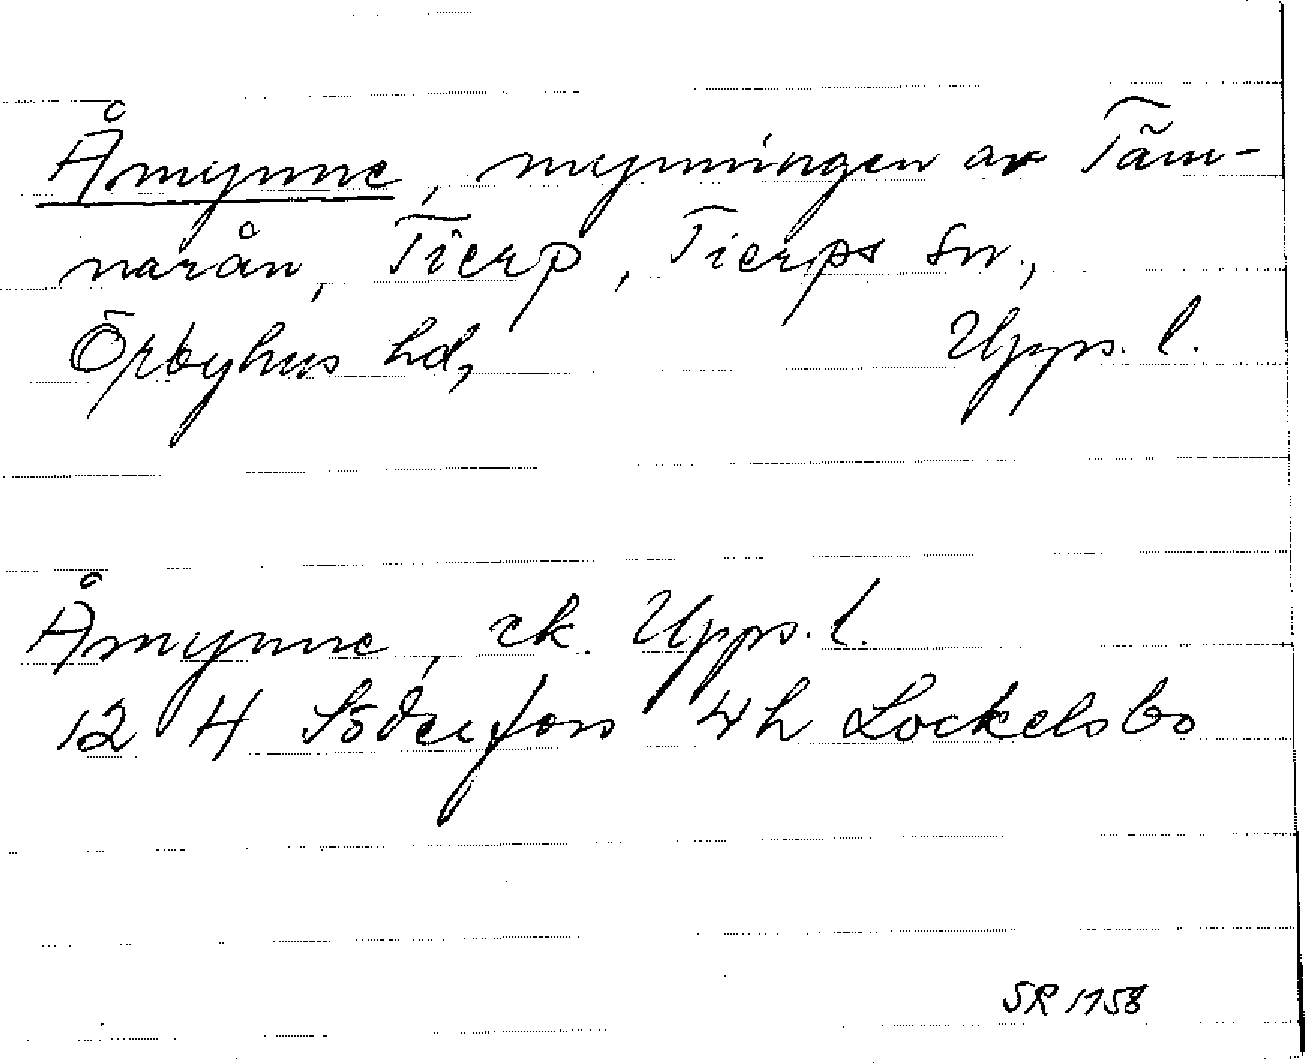 Åmynne, mynningen av Täm-
narån, Tierp, Tierps sn.,
Örbyhus hd, Upps. l.
Åmynne, ek. Upps. l.
12 H Söderfors 4h Lockelsbo
SR 1758